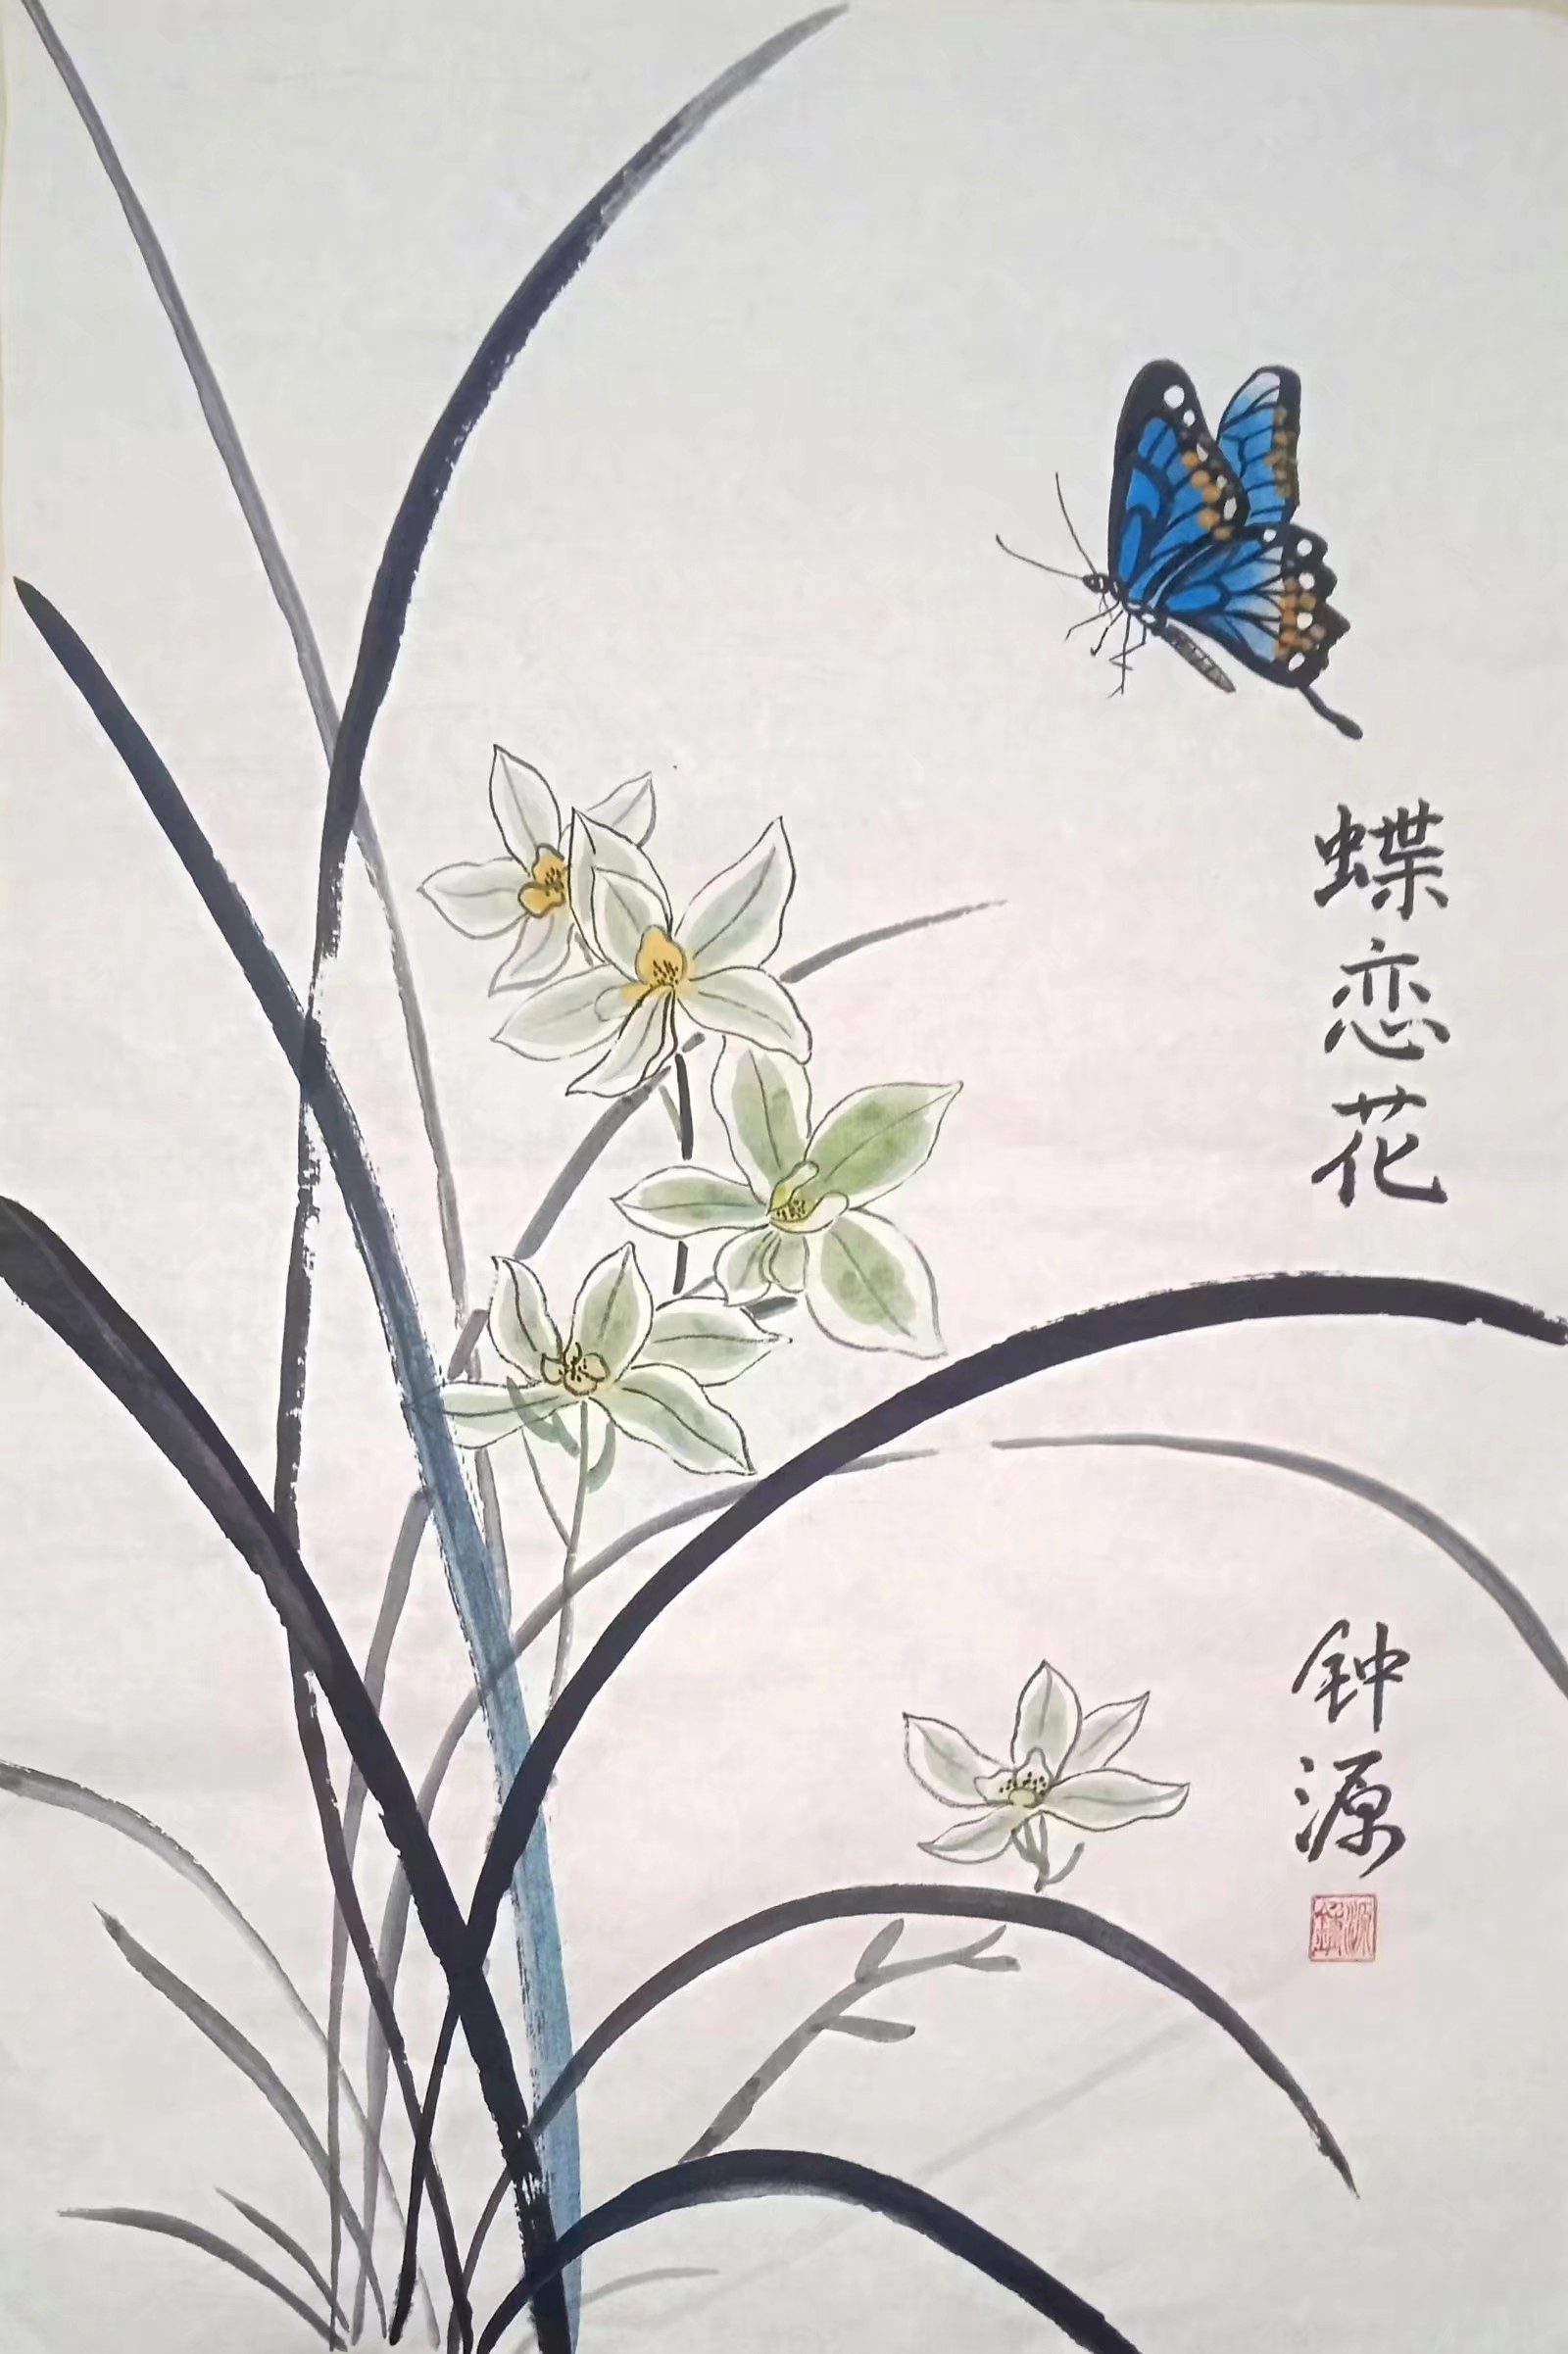 蝶恋花
钟源